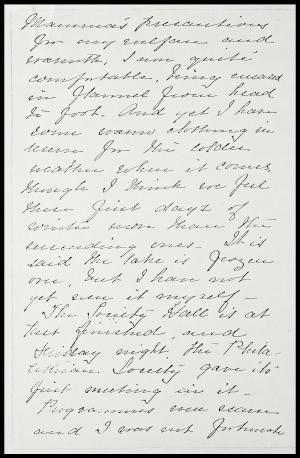 Mamma's precautions
for my welfare and
warmth, I am quite
comfortable, being encased
in flannel from head
to foot. And yet I have
some warm clothing in
reserve for the colder
weather when it comes,
though I think we feel
these first days of
winter more than the
succeeding ones. It is
said the lake is frozen
over, but I have not
yet seen it myself —
The Society Hall is at
last finished, and
Friday night, the Phila-
lethean Society gave its
first meeting in it —
Programmes were
and I was not fortunate